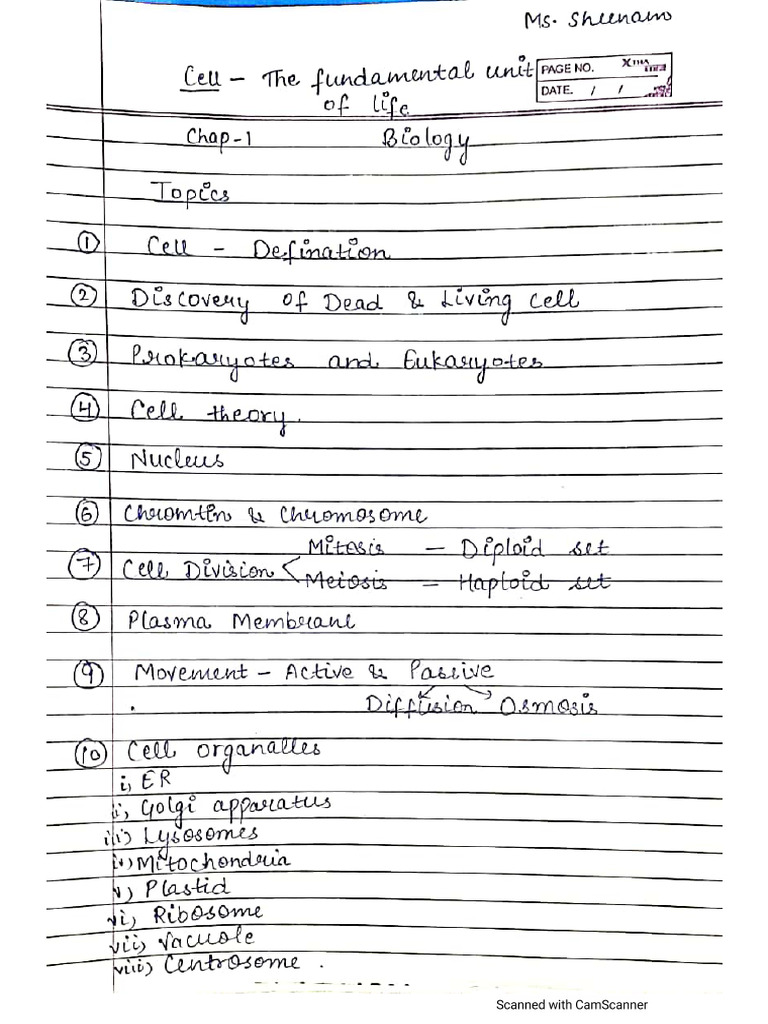 Ms. Sheenam
Cell - The fundamental unit
of life
PAGE NO.
DATE. / /
Chap-1 Biology
Topics
① Cell - Defination
② Discovery of Dead & Living cell
③ Prokaryotes and Eukaryotes
④ Cell theory.
⑤ Nucleus
⑥ Chromtin & Chromosome
Mitosis - Diploid set
⑦ Cell Division
Meiosis - Haploid set
⑧ Plasma Membrane
⑨ Movement - Active & Passive
Diffusion Osmosis
⑩ Cell organalles
i, ER
i, Golgi apparatus
iii) Lysosomes
iv) Mitochondria
v) Plastid
vi) Ribosome
vii) Vacuole
viii) Centrosome.
Scanned with CamScanner